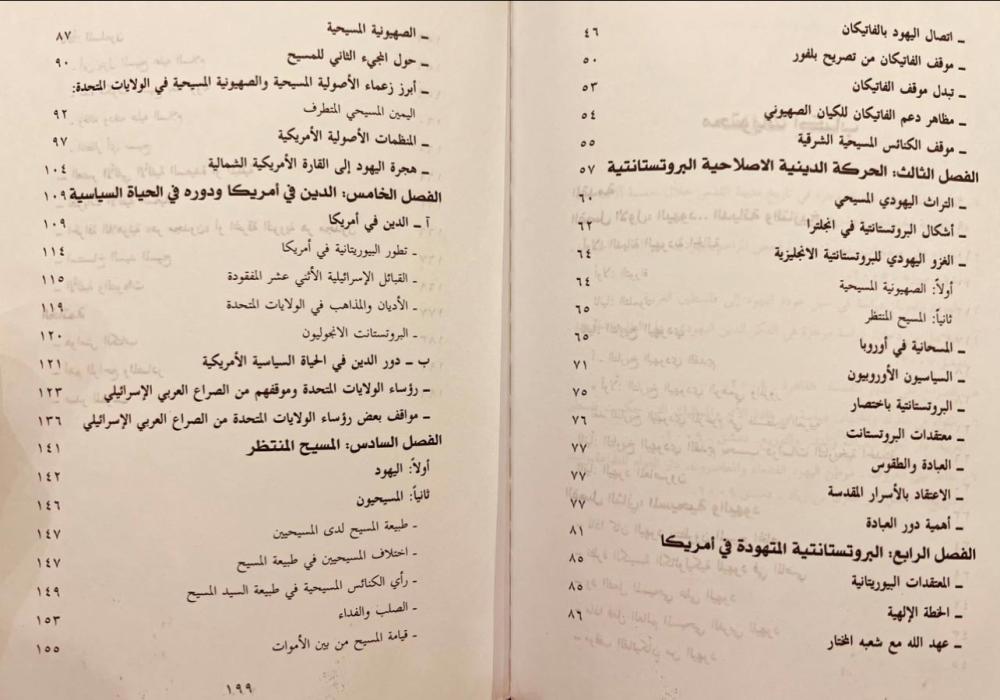 ـ اتصال اليهود بالفاتيكان ٤٦
ـ موقف الفاتيكان من تصريح بلفور ٥٠
ـ تبدل موقف الفاتيكان ٥٣
ـ مظاهر دعم الفاتيكان للكيان الصهيوني ٥٤
ـ موقف الكنائس المسيحية الشرقية ٥٥
الفصل الثالث: الحركة الدينية الاصلاحية البروتستانتية ٥٧
ـ التراث اليهودي المسيحي ٦٠
ـ أشكال البروتستانتية في انجلترا ٦٢
ـ الغزو اليهودي للبروتستانتية الانجليزية ٦٤
أولاً: الصهيونية المسيحية ٦٤
ثانياً: المسيح المنتظر ٦٥
ـ المسحانية في أوروبا ٦٥
ـ السياسيون الأوروبيون ٧١
ـ البروتستانتية باختصار ٧٥
ـ معتقدات البروتستانت ٧٦
ـ العبادة والطقوس ٧٧
ـ الاعتقاد بالأسرار المقدسة ٧٧
ـ أهمية دور العبادة ٧٧
الفصل الرابع: البروتستانتية المتهودة في أمريكا ٨١
ـ المعتقدات البيوريتانية ٨٥
ـ الخطة الإلهية ٨٥
ـ عهد الله مع شعبه المختار ٨٦
ـ الصهيونية المسيحية ٨٧
ـ حول المجيء الثاني للمسيح ٩٠
ـ أبرز زعماء الأصولية المسيحية والصهيونية المسيحية في الولايات المتحدة:
اليمين المسيحي المتطرف ٩٢
ـ المنظمات الأصولية الأمريكية ٩٧
ـ هجرة اليهود إلى القارة الأمريكية الشمالية ١٠٤
الفصل الخامس: الدين في أمريكا ودوره في الحياة السياسية ١٠٩
آ ـ الدين في أمريكا ١٠٩
- تطور البيوريتانية في أمريكا ١١٤
- القبائل الإسرائيلية الأثني عشر المفقودة ١١٥
- الأديان والمذاهب في الولايات المتحدة ١١٩
- البروتستانت الانجوليون ١٢٠
ب ـ دور الدين في الحياة السياسية الأمريكية ١٢١
ـ رؤساء الولايات المتحدة وموقفهم من الصراع العربي الإسرائيلي ١٢٣
ـ مواقف بعض رؤساء الولايات المتحدة من الصراع العربي الإسرائيلي ١٣٦
الفصل السادس: المسيح المنتظر ١٤١
أولاً: اليهود ١٤٢
ثانياً: المسيحيون ١٤٦
- طبيعة المسيح لدى المسيحيين ١٤٧
- اختلاف المسيحيين في طبيعة المسيح ١٤٧
- رأي الكنائس المسيحية في طبيعة السيد المسيح ١٤٩
- الصلب والفداء ١٥٣
- قيامة المسيح من بين الأموات ١٥٥
١٩٩